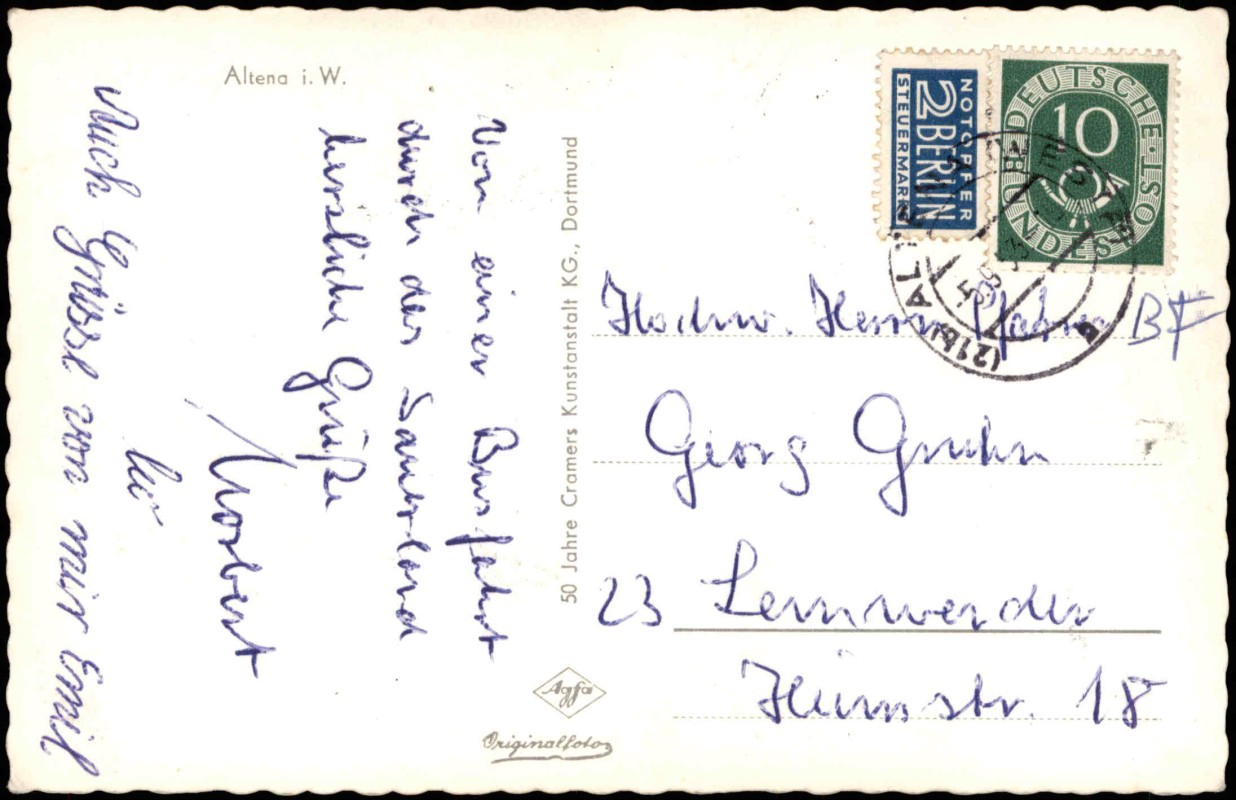 Altena i. W.
Von einer Busfahrt
durch das Sauerland
herzliche Grüße
Norbert
Auch Grüsse von mir Emil
50 Jahre Cramers Kunstanstalt KG., Dortmund
Agfa
Originalfoto
NOTOPFER
2 BERLIN
STEUERMARKE
DEUTSCHE BUNDESPOST
10
(21b) ALTENA WESTF
Hochw. Herrn
Georg Gruhn
23 Lemwerder
18